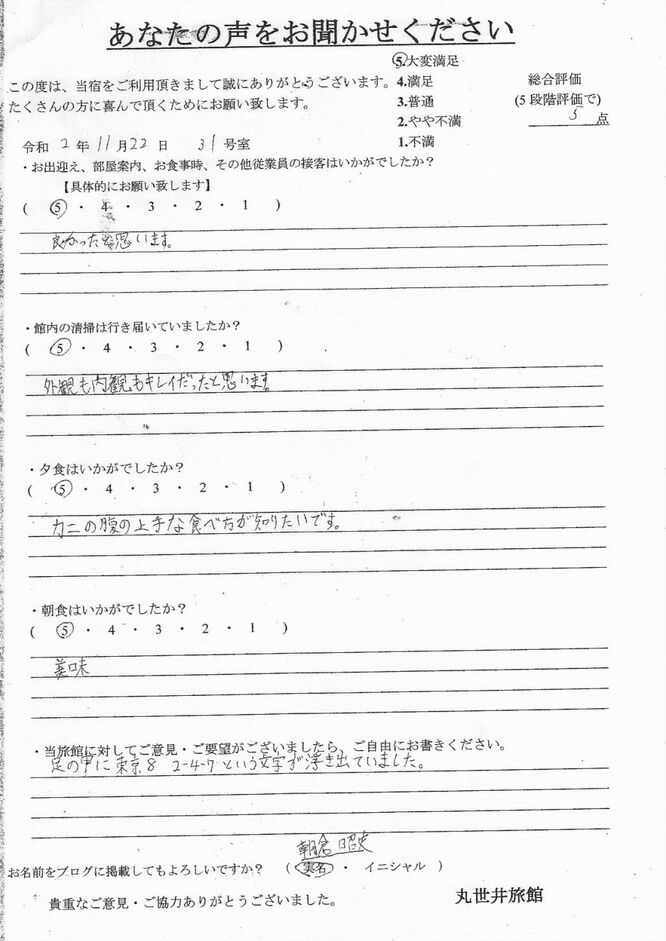 あなたの声をお聞かせください
この度は、当宿をご利用頂きまして誠にありがとうございます。
たくさんの方に喜んで頂くためにお願い致します。
5.大変満足
4.満足
3.普通
2.やや不満
1.不満
総合評価
(5段階評価で)
5 点
令和 2 年 11 月 22 日 31 号室
・お出迎え、部屋案内、お食事時、その他従業員の接客はいかがでしたか？
【具体的にお願い致します】
( 5 ・ 4 ・ 3 ・ 2 ・ 1 )
良かったと思います。
・館内の清掃は行き届いていましたか？
( 5 ・ 4 ・ 3 ・ 2 ・ 1 )
外観も内観もキレイだったと思います。
・夕食はいかがでしたか？
( 5 ・ 4 ・ 3 ・ 2 ・ 1 )
カニの腹の上手な食べ方が知りたいです。
・朝食はいかがでしたか？
( 5 ・ 4 ・ 3 ・ 2 ・ 1 )
美味
・当旅館に対してご意見・ご要望がございましたら、ご自由にお書きください。
足の甲に東京8 2-4-7という文字が浮き出ていました。
朝倉 昭史
お名前をブログに掲載してもよろしいですか？ ( 実名 ・ イニシャル )
貴重なご意見・ご協力ありがとうございました。
丸世井旅館